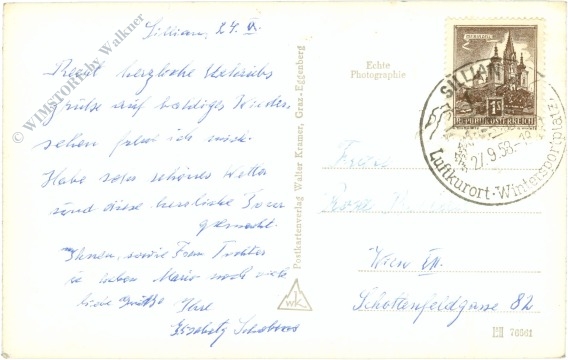 © WIMSTORE by Walkner
Sillian, 27. IX.
Recht herzliche Urlaubs
grüße auf baldiges Wieder
sehen freut ich mich.
Habe sehr schönes Wetter
und diese herrliche Tour
gemacht.
Ihnen, sowie Frau Tochter
u. lieben Mario noch viele
liebe Grüße Ihre
Elisabeth
Echte
Photographie
Postkartenverlag Walter Kramer, Graz-Eggenberg
WK
MARIAZELL
1S
REPUBLIK ÖSTERREICH
SILLIAN
27.9.58
Luftkurort-Wintersportplatz
Frau
Wien VII.
Schottenfeldgasse 82
76661